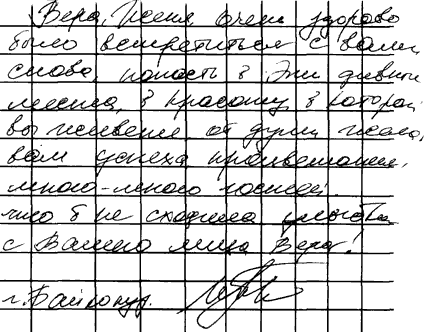 Вера, Ксеня очень здорово
было встретиться с вами
снова, попасть в эти дивные
места, в красоту, в которой
вы живете от души желаю,
вам успеха процветания,
много-много гостей.
что б не сходила улыбка
с Вашего лица Вера!
г. Байконур.